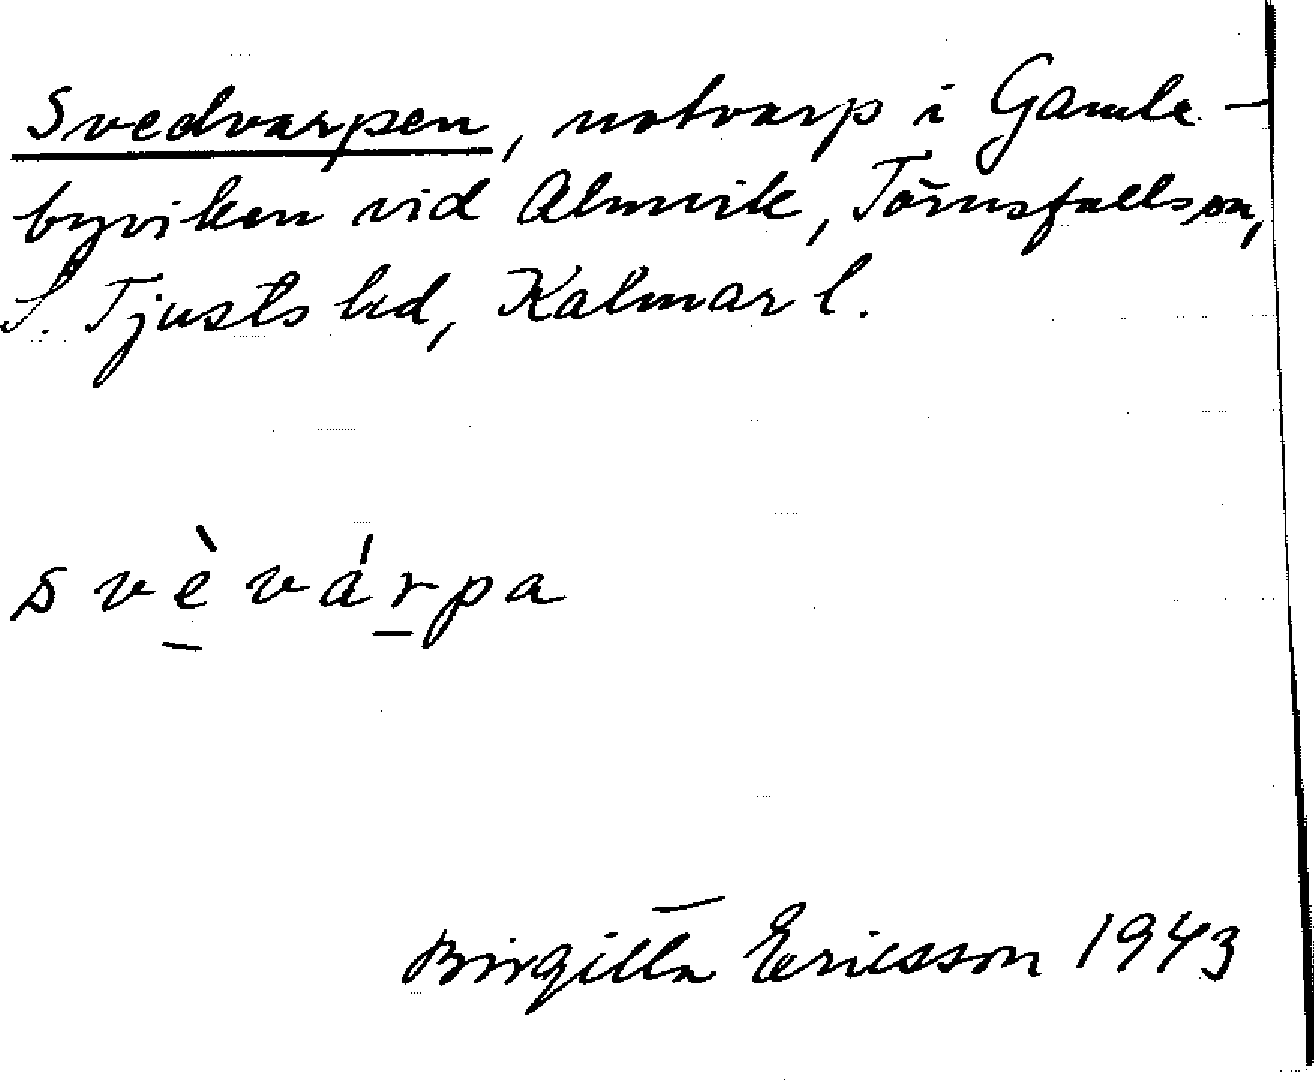 Svedvarpen, notvarp i Gamle-
byviken vid Almvik, Törnsfalls sn,
S. Tjusts hd, Kalmar l.
svèvárpa
Birgitta Ericsson 1943